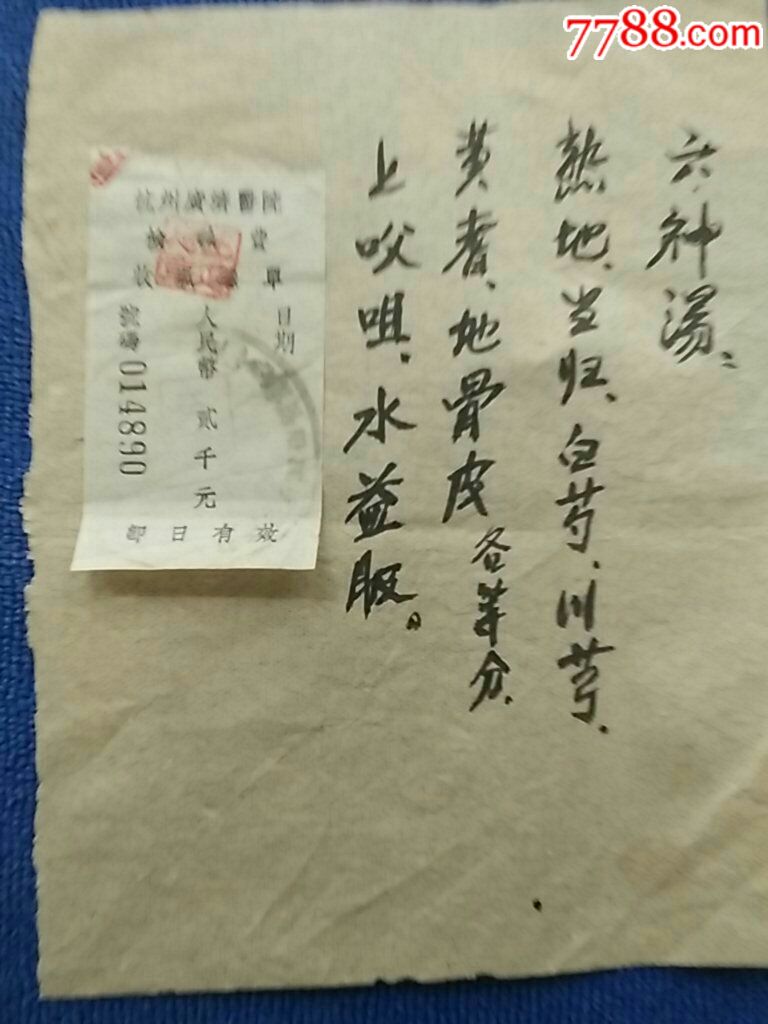 7788.com
六神湯：
熟地、当归、白芍、川芎、
黄耆、地骨皮各等分、
上㕮咀，水益服。
杭州廣濟醫院
費
收據單
日期
人民幣貳千元
號碼014890
即日有效